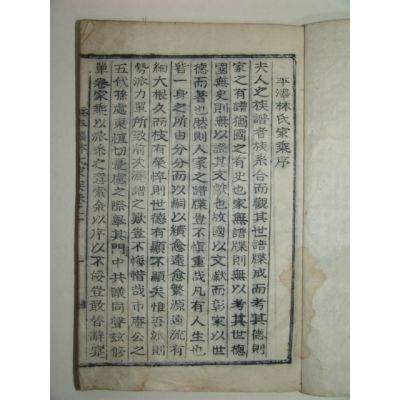 平澤林氏家乘序
夫人之族譜者族系合而觀其世譜牒成而考其德則
家之有譜猶國之有史也家無譜牒則無以考其世德
國無史則無以證其文獻也故國以文獻而彰家以世
德而著也然則人家之譜牒豈不愼重哉凡有人生也
皆一身之所由分而以嗣以續愈遠愈繁源遠流有
細大根久而枝有榮悴則世德有顯不顯矣惟吾派則
勢派力單所致前次派譜之歎豈不悔惜哉市庵公之
五代孫處東恒切憂慮之際擧其門中共議同聲玆修
單卷家乘以派系之
索余以序以不綏豈敢
辭